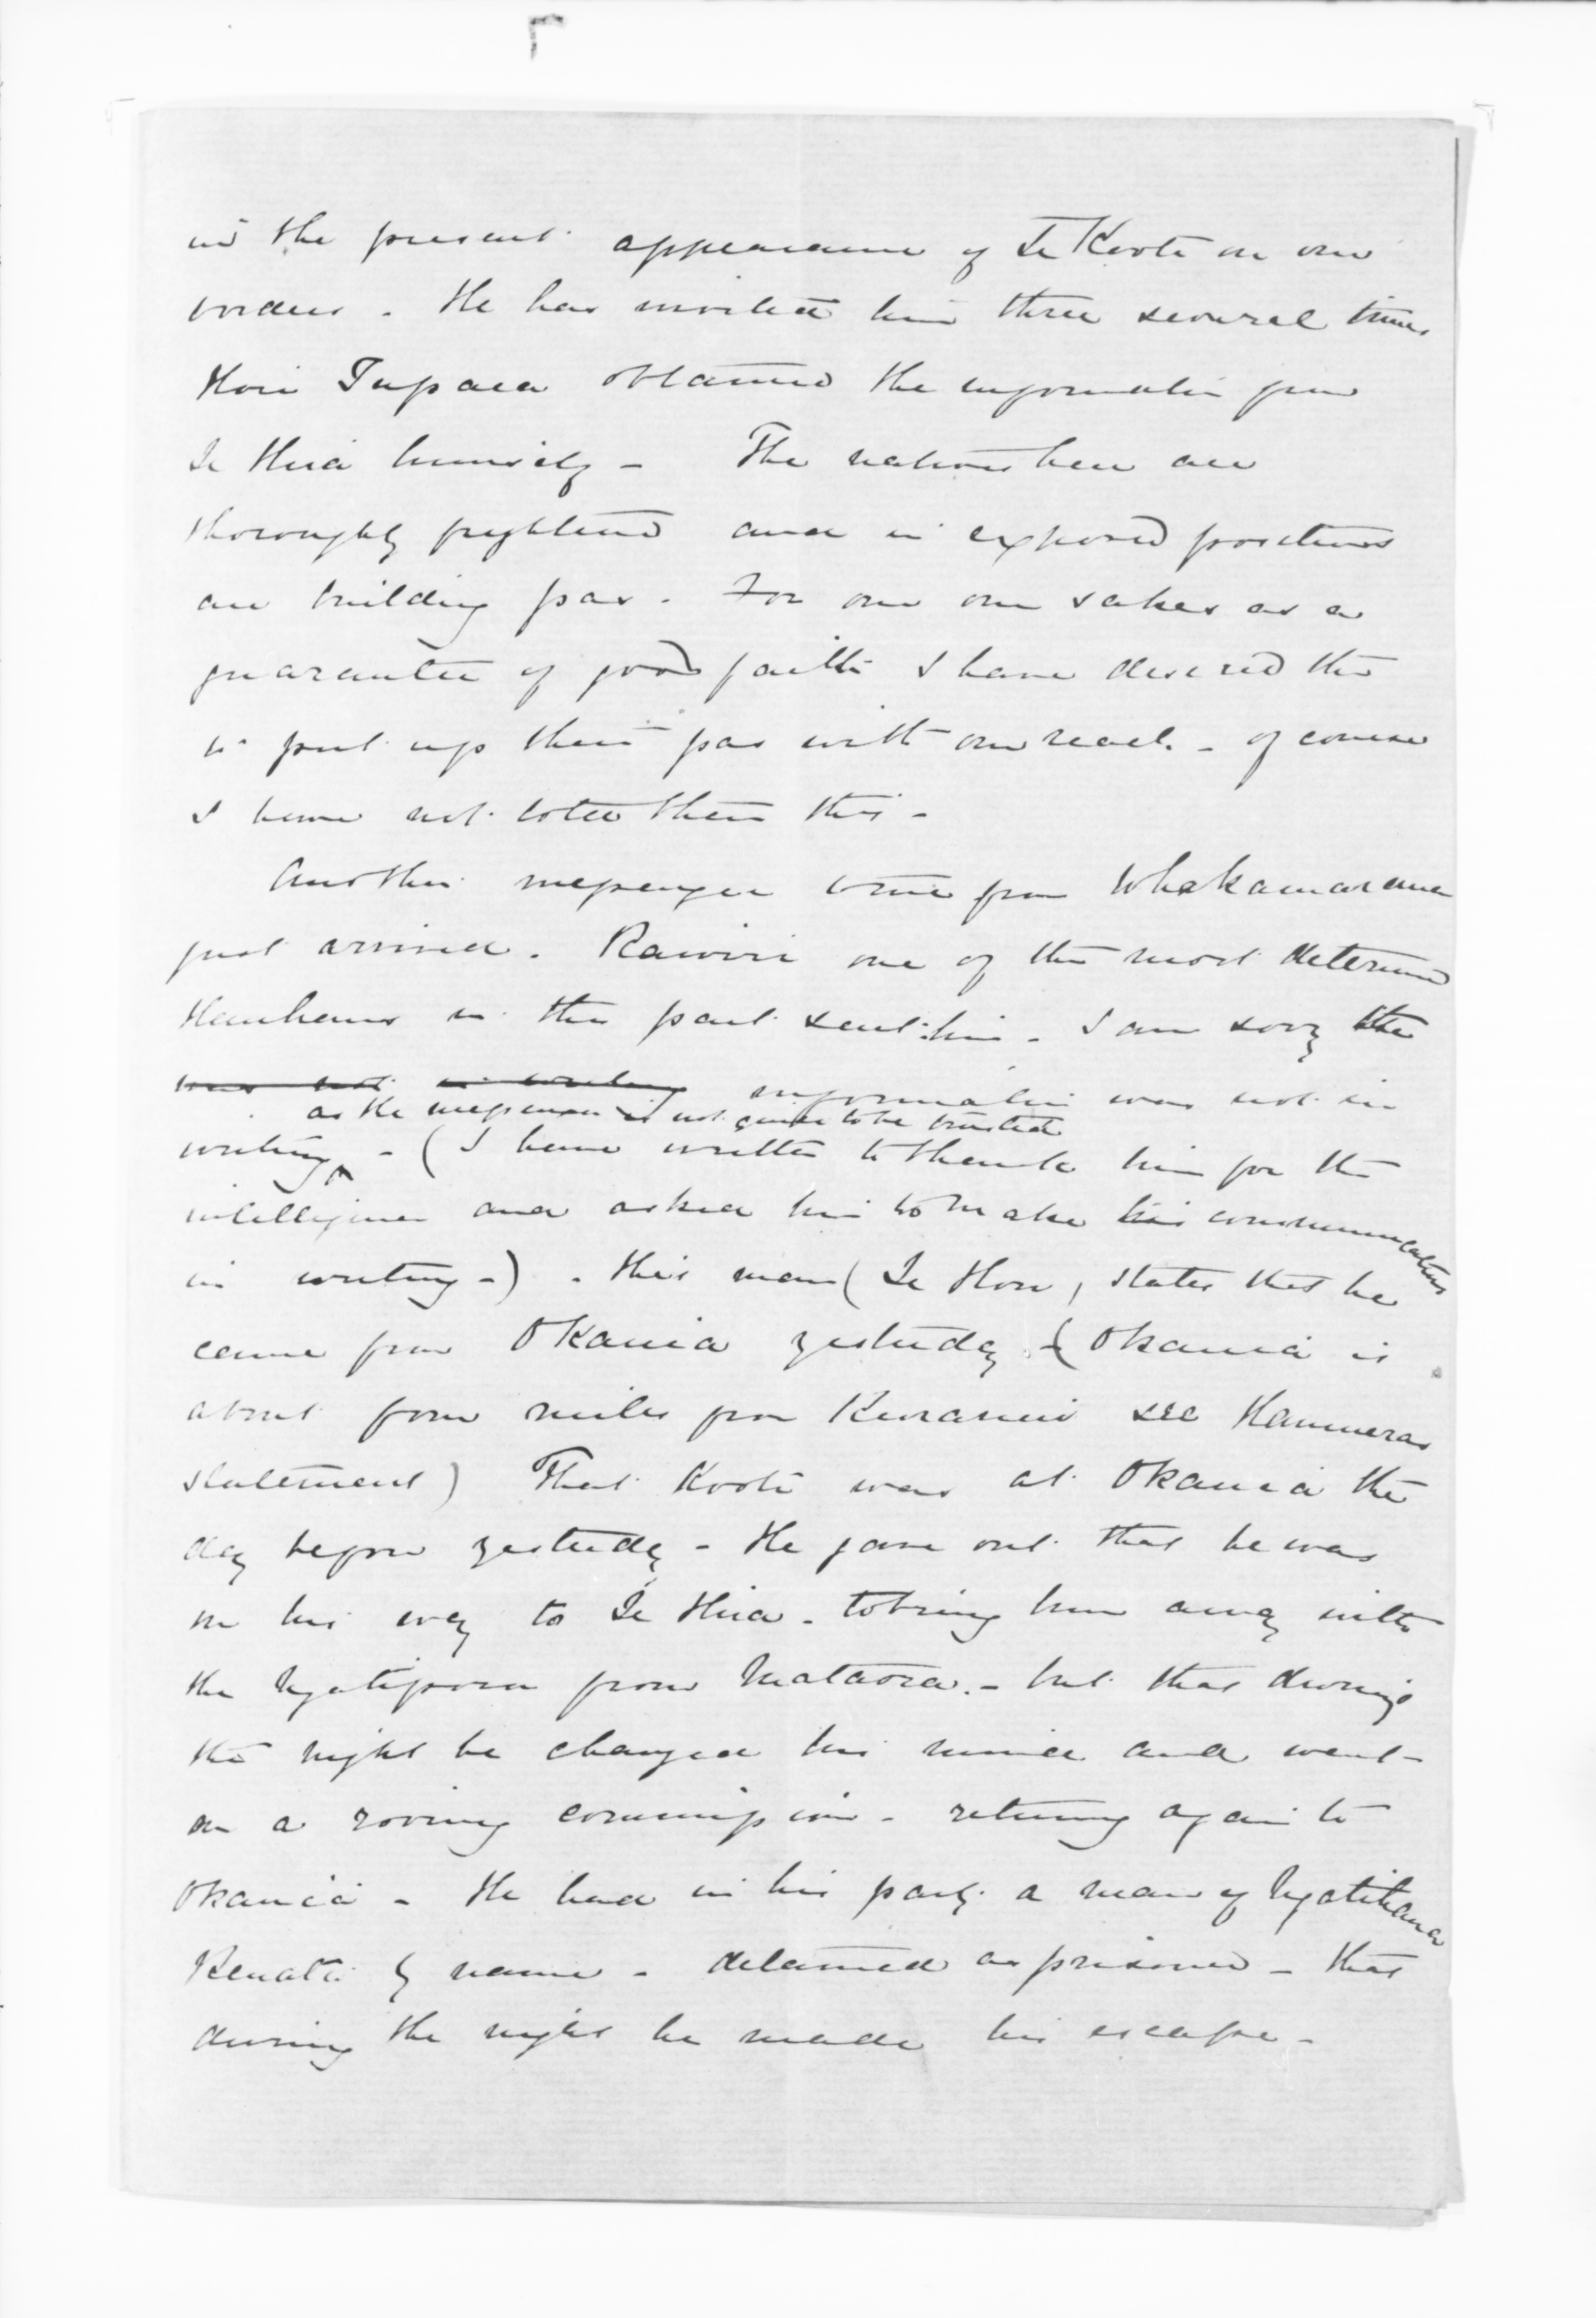 in the present appearance of Te Kooti on our
borders. He has invited him three several times
Hori Tupaea obtained the information from
Te Hira himself - The natives here are
thoroughly frightened and in exposed positions
are building pas. For our own sakes as a
guarantee of good faith I have desired them
to put up their pas with our reach - of course
I have not told them this -
Another messenger from Whakamarama
just arrived. Rawiri one of the most determined
Hauhaus in the past sent him. I am sorry the
was not in writing information was not in
as the messenger is not quite to be trusted
writing - (I have written to thank him for the
intelligence and asked him to make his communications
in writing -) . this man (Te Hori, states that he
came from Okauia yesterday - (Okauia is
about four miles from see
statement) That Kooti was at Okauia the
day before yesterday - He gave out that he was
on his way to Te Hira - to bring him away with
the Ngatiporou from Mataora. - but that during
the night he changed his mind and went
on a roving commission - returning again to
Okauia - He had in his party a man of
Renata by name - detained as prisoner - that
during the night he made his escape -